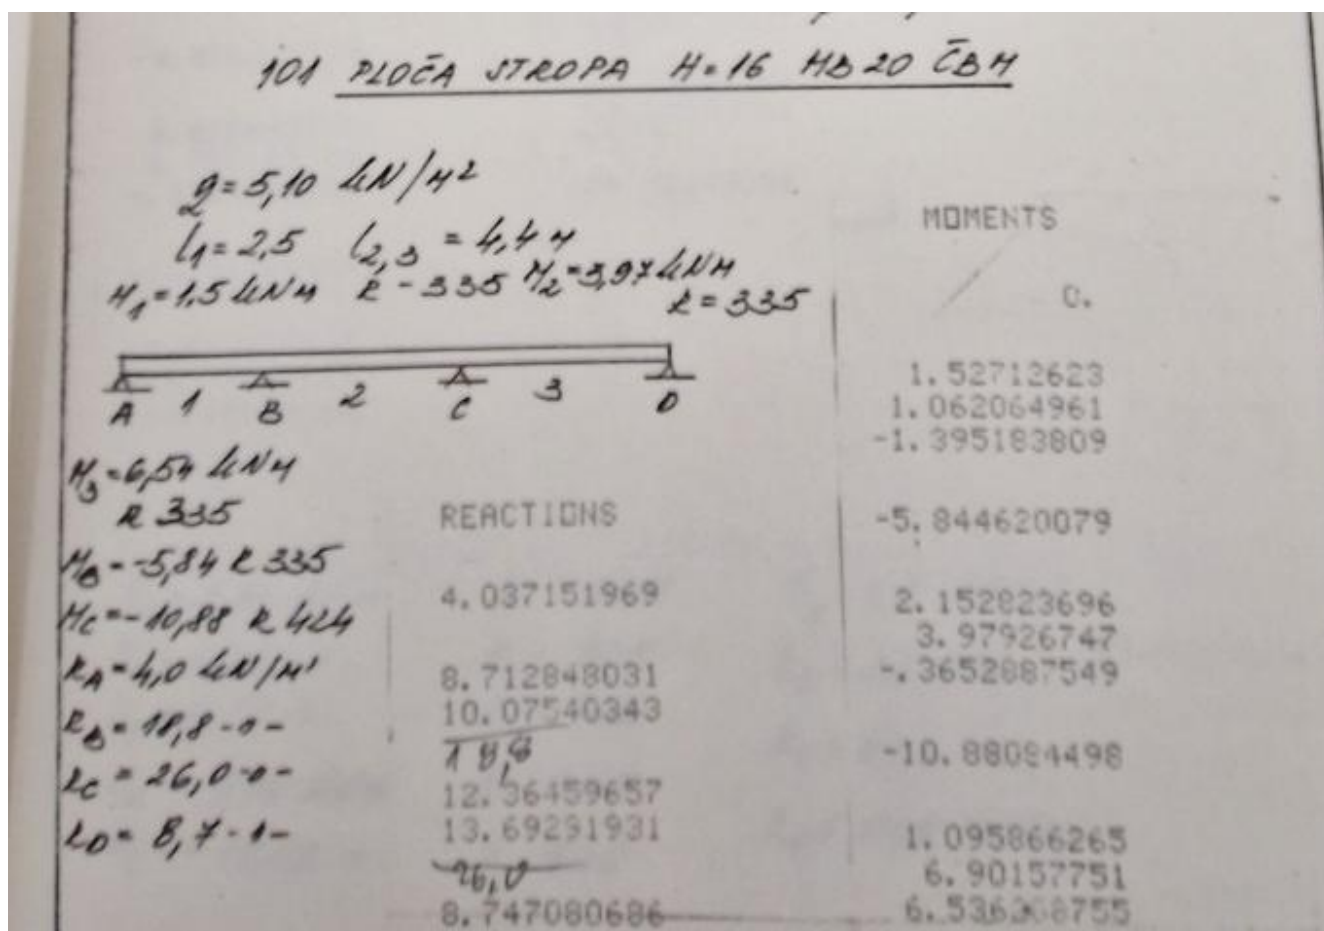 101 PLOČA STROPA H=16 MB20 ČBM
g=5,10 kN/m²
l1=2,5 l2,3 = 4,4 m
M1=1,5 kNm R-335 M2=3,97 kNm
R=335
A 1 B 2 C 3 D
M3=6,54 kNm
R 335
MB=-5,84 R 335
MC=-10,88 R 424
RA=4,0 kN/m'
RB=18,8 -"-
RC=26,0 -"-
RD=8,7 -"-
REACTIONS
4.037151969
8.712848031
10.07540343
18,8
12.36459657
13.69291931
26,0
8.747080686
MOMENTS
0.
1.52712623
1.062064961
-1.395183809
-5.844620079
2.152823696
3.97926747
-.3652887549
-10.88084498
1.095866265
6.90157751
6.536368755